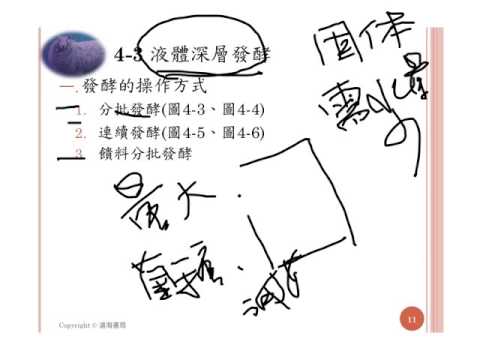 4-3 液體深層發酵
一. 發酵的操作方式
1. 分批發酵(圖4-3、圖4-4)
2. 連續發酵(圖4-5、圖4-6)
3. 饋料分批發酵
固体
需水量
最大
菌
Copyright © 滄海書局
11